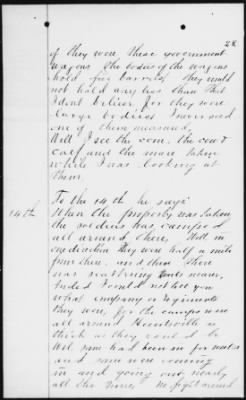 28
of they were these government
wagons. The bodies of the wagons
hold five barrels. They could
not hold any less than that
I don't believe, for they were
large bodies. I never saw
one of them measured.
Well I see the corn, the cow &
calf and the mare taken
while I was looking at
them.
To the 14th he says
14th
When the property was taken
the soldiers was camped
all around there. Well in
one direction they were half a mile
from there. and then there
was scattering tents nearer,
Indeed I could not tell you
what company or regiments
they were, for the camps were
all around Huntsville as
thick as they could be
Well some had been in for weeks
and some were coming
in and going out nearly
all the time. No fight around